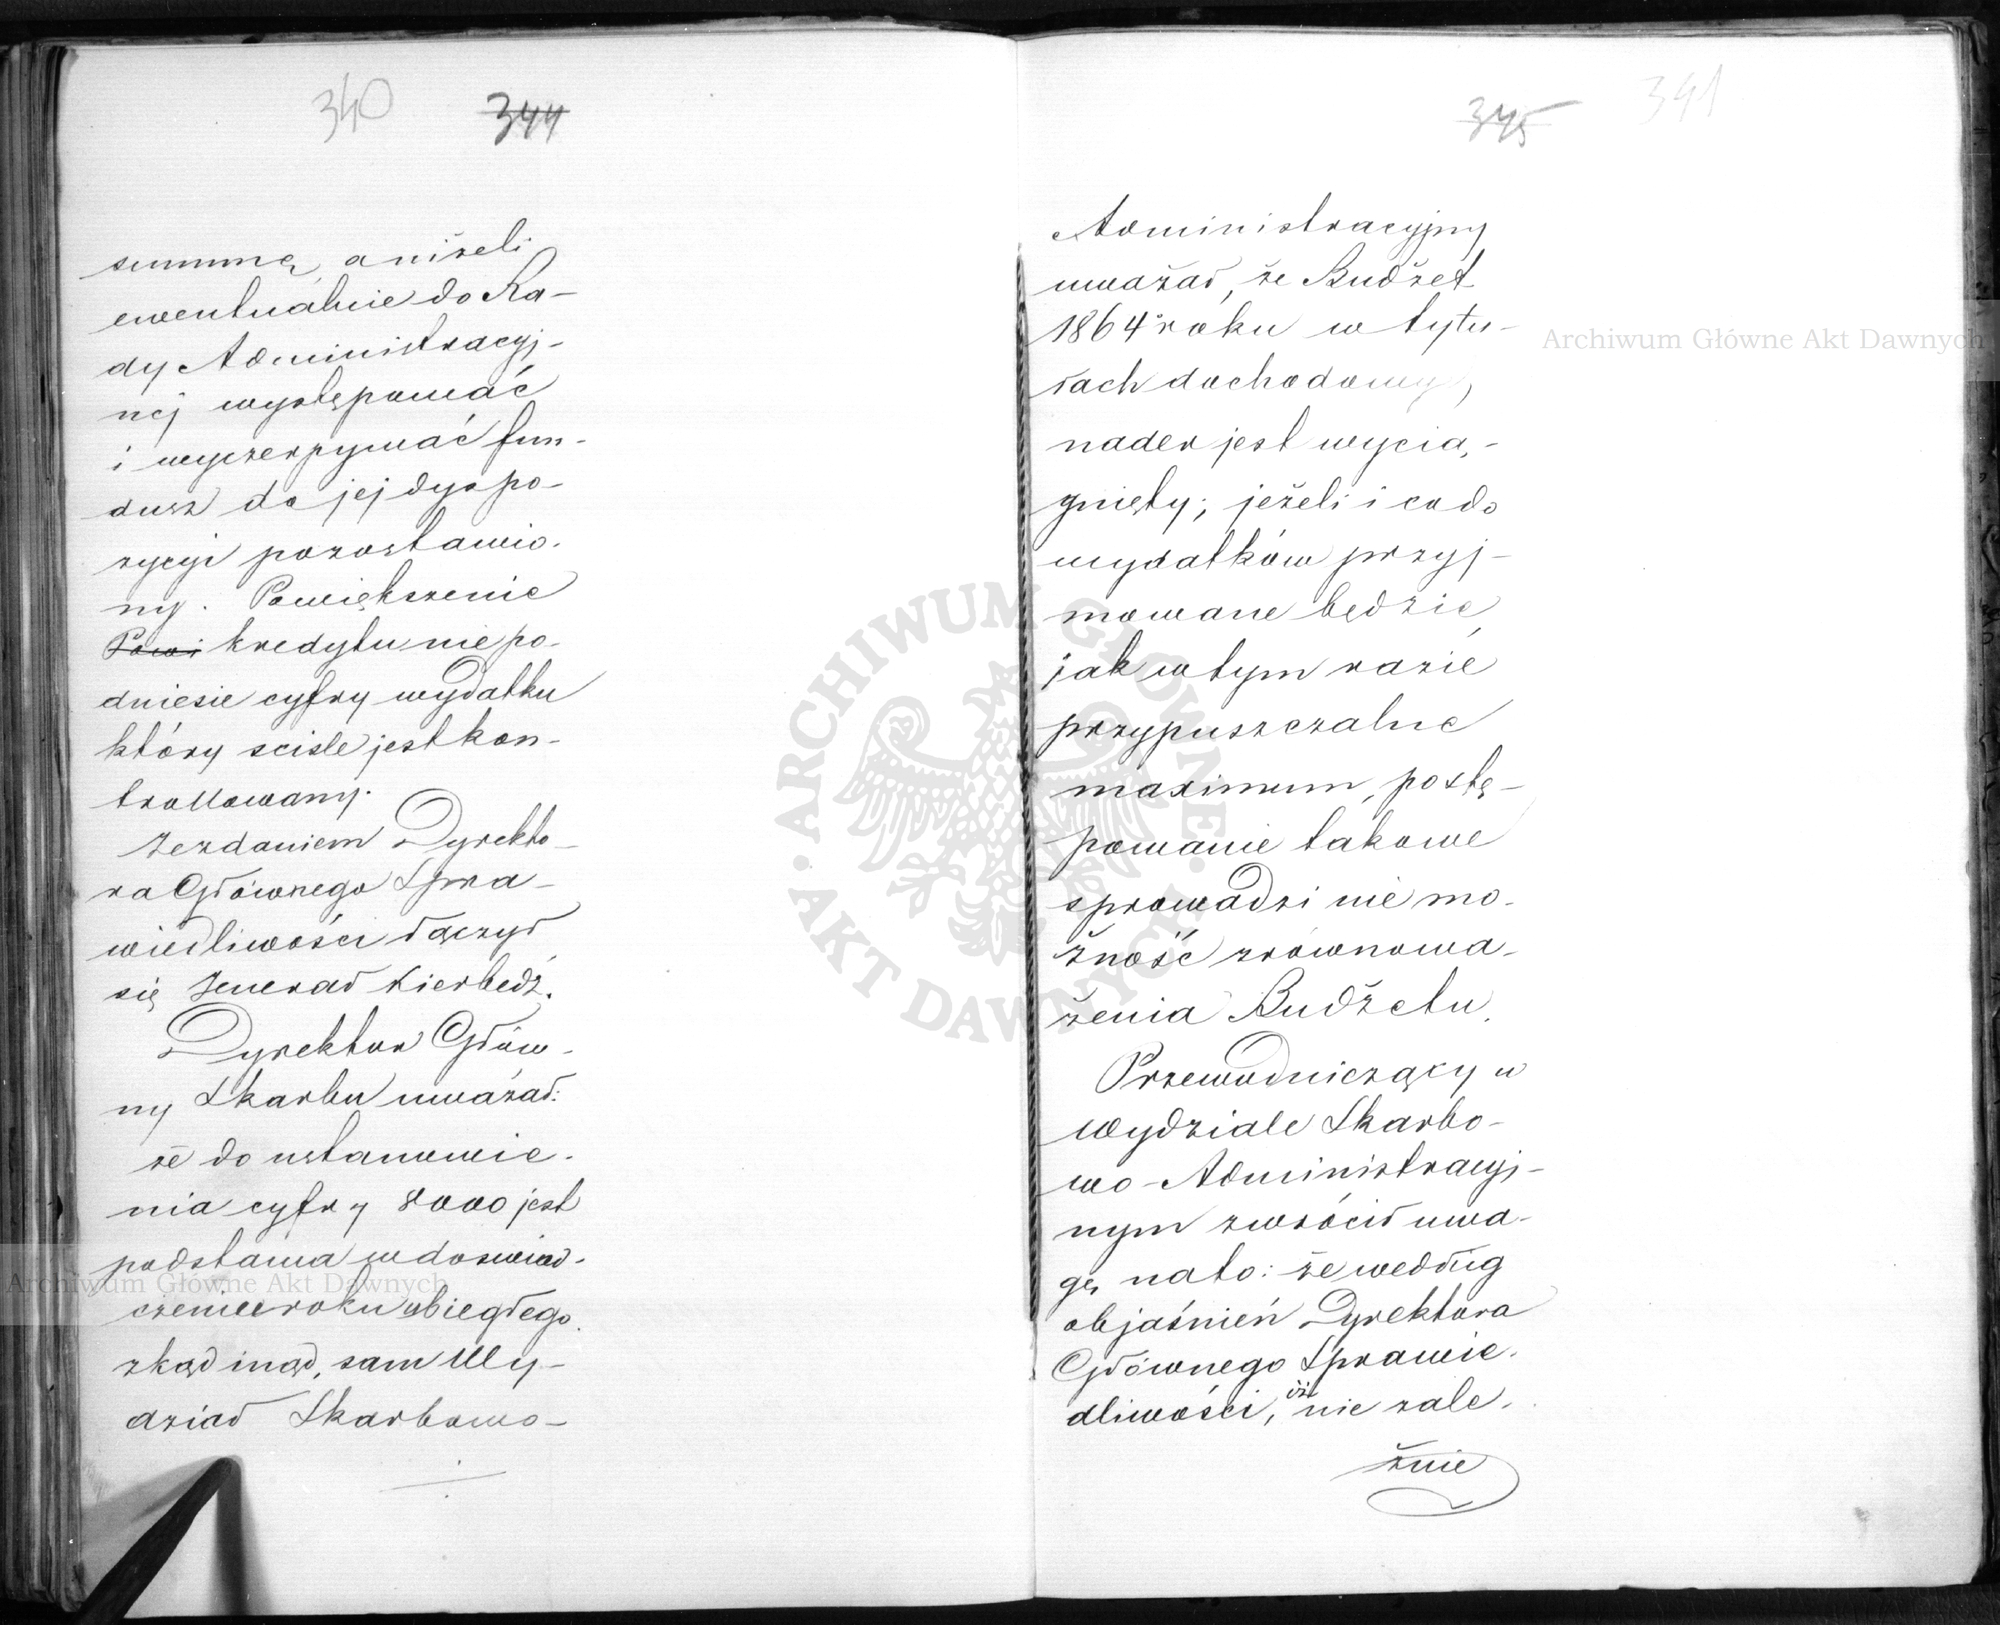 340 344
summę, aniżeli
ewentualnie do Ra-
dy Administracyj-
nej występować
i wyczerpywać fun-
dusz do jej dyspo-
zycji pozostawio-
ny. Powiększenie
Powi kredytu nie po-
dniesie cyfry wydatku
który scisle jest kon-
trollowany.
Ze zdaniem Dyrekto-
ra Głównego Spra-
wiedliwości łączył
się Jenerał Kierbedź.
Dyrektor Głów-
ny Skarbu uważał:
że do ustanowie-
nia cyfry 8000 jest
podstawa w doswiad-
czeniu roku ubiegłego
zkąd inąd, sam Wy-
dział Skarbowo-
345 341
Administracyjny
uważał, że Budżet
1864 roku w tytu-
łach dochodowych,
nader jest wycią-
gnięty; jeżeli i co do
wydatków przyj-
mowane będzie,
jak w tym razie
przypuszczalne
maximum, postę-
powanie takowe
sprowadzi nie mo-
żność zrównowa-
żenia Budżetu.
Przewodniczący w
Wydziale Skarbo-
wo-Administracyj-
nym zwrócił uwa-
gę na to: że według
objaśnień Dyrektora
Głównego Sprawie-
dliwości, iż nie zale-
żnie
Archiwum Główne Akt Dawnych
Archiwum Główne Akt Dawnych
ARCHIWUM GŁÓWNE AKT DAWNYCH